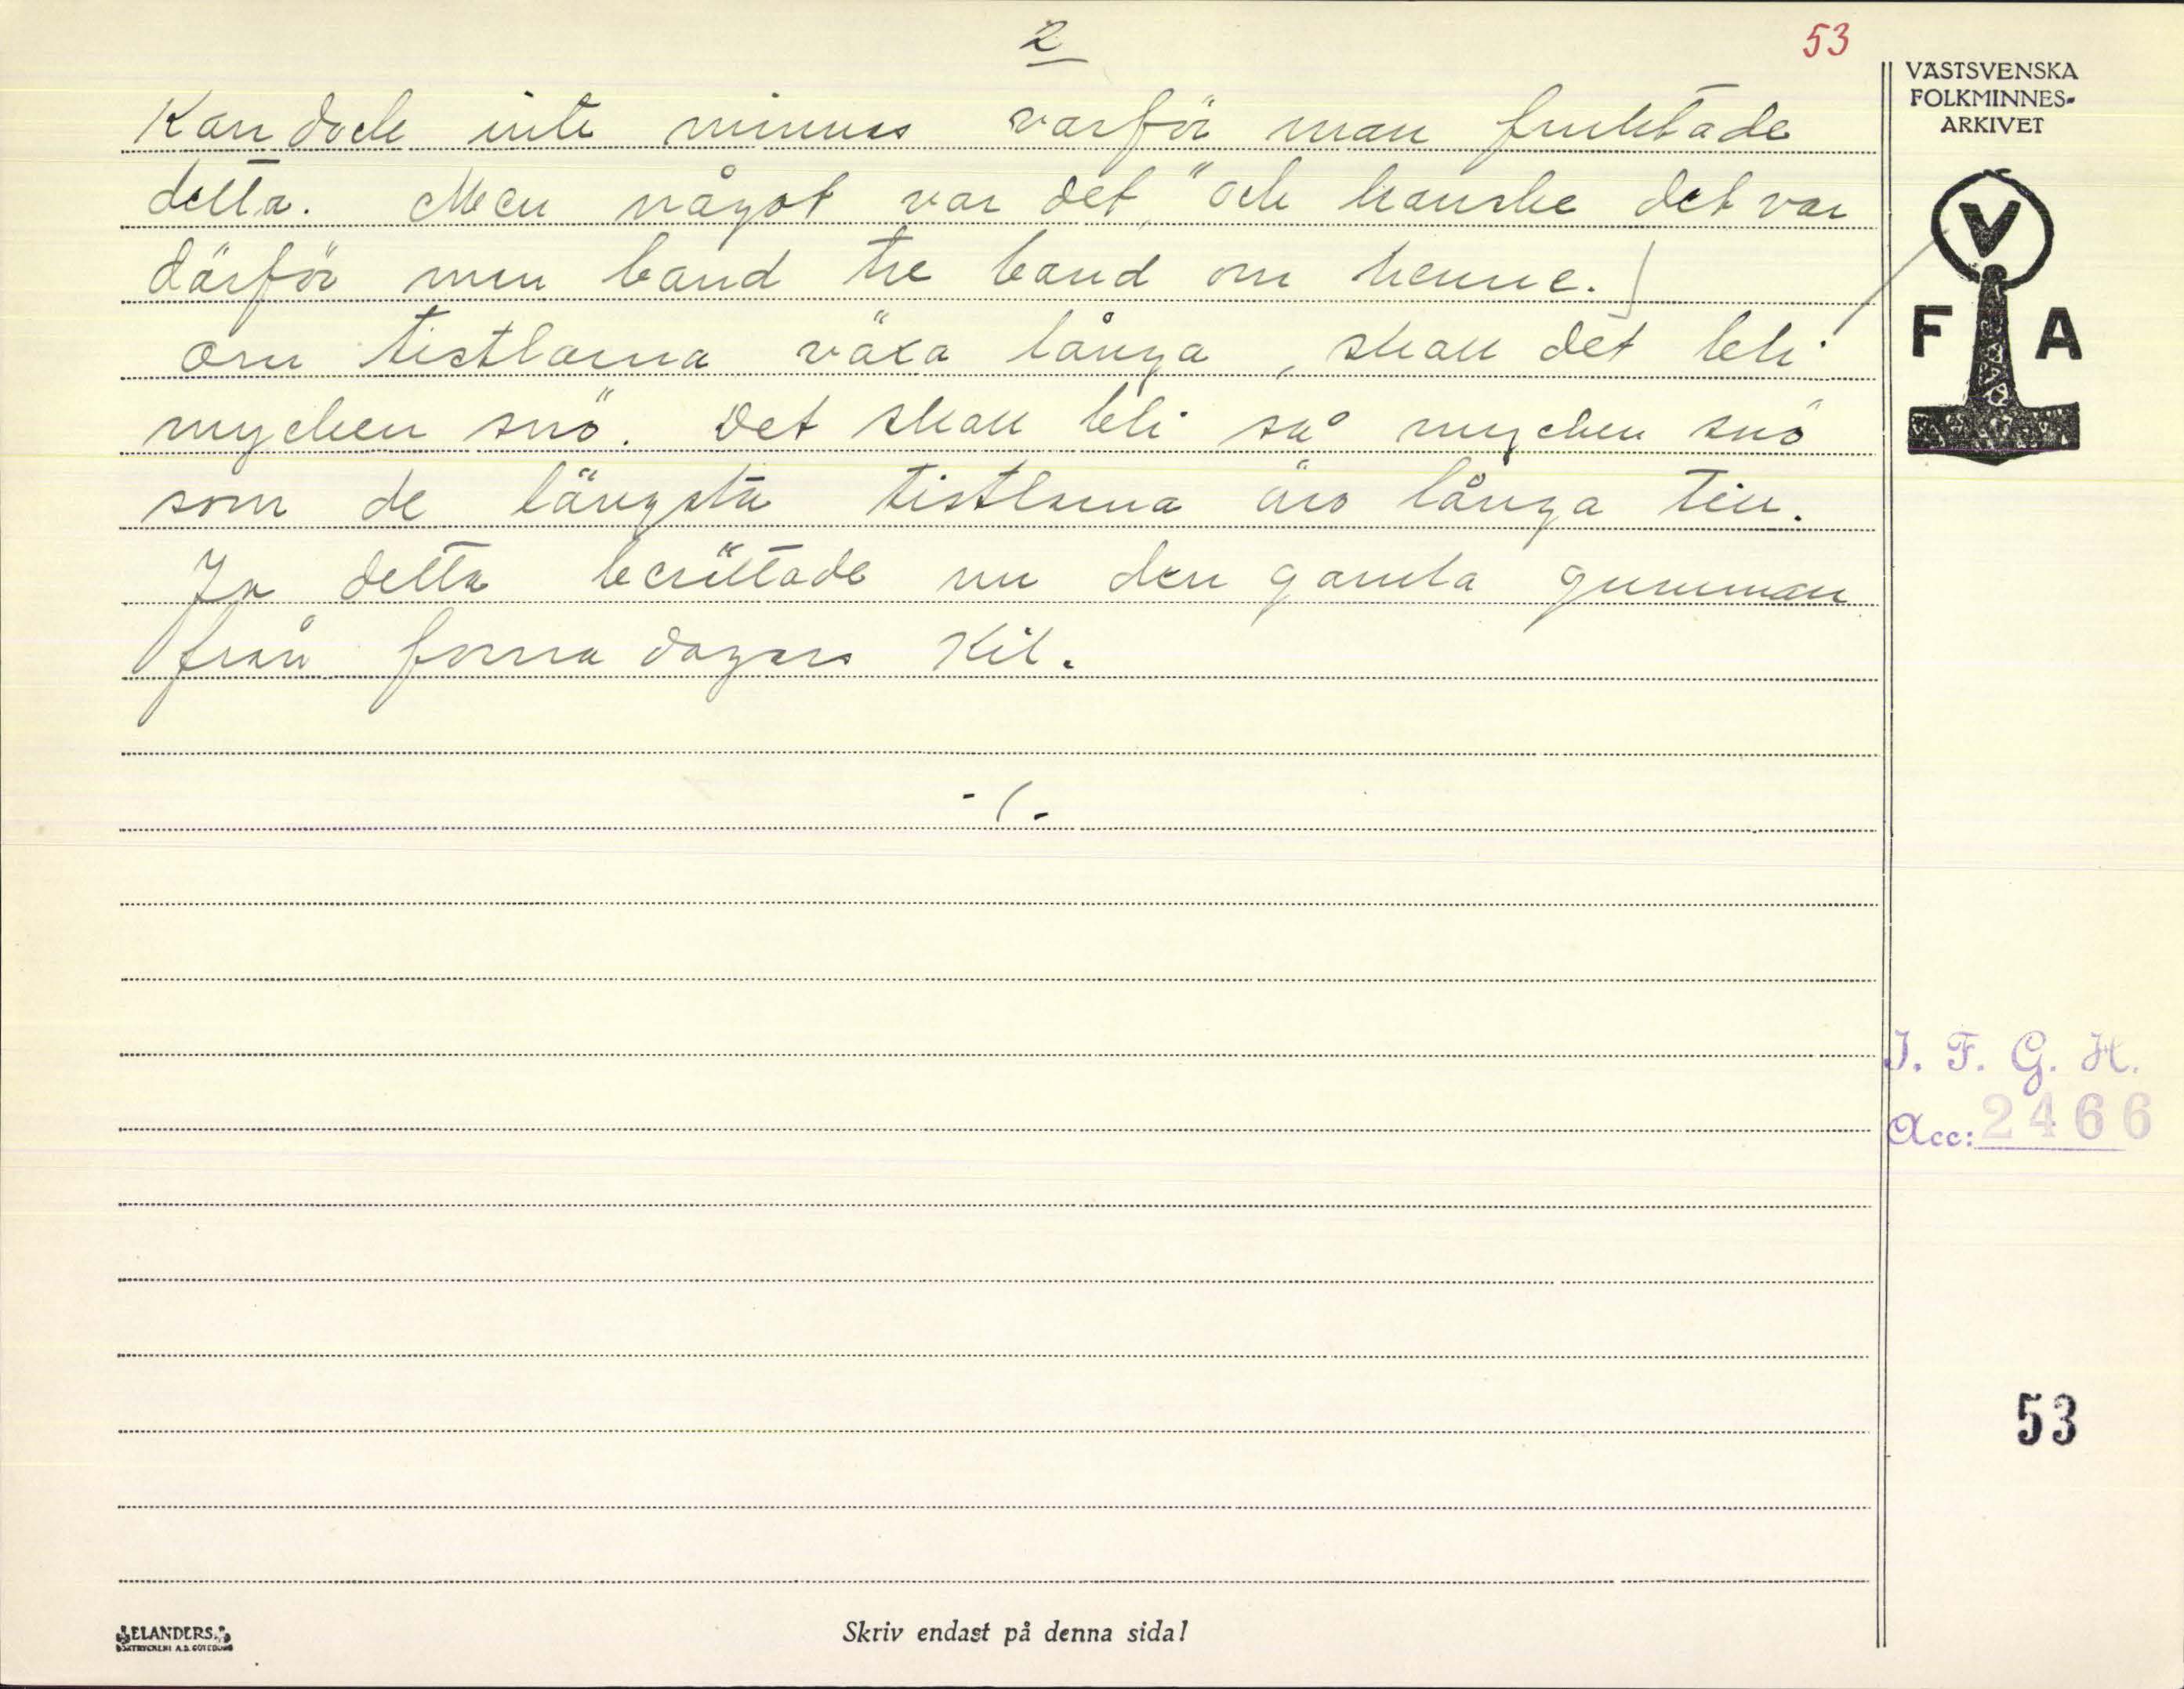 2
53
Kan dock inte minnas varför man fruktade
detta. Men något var det," och kanske det var
därför men band tre band om henne.)
Om tistlarna växa långa, skall det bli
mycken snö. Det skall bli så mycken snö
som de längsta tistlarna äro långa till.
Ja detta berättade nu den gamla gumman
från forna dagars Kil.
-/-
VÄSTSVENSKA
FOLKMINNES-
ARKIVET
V
F A
I. F. G. H.
Acc: 2466
53
ELANDERS
BOKTRYCKERI A.B. GÖTEBORG
Skriv endast på denna sida!